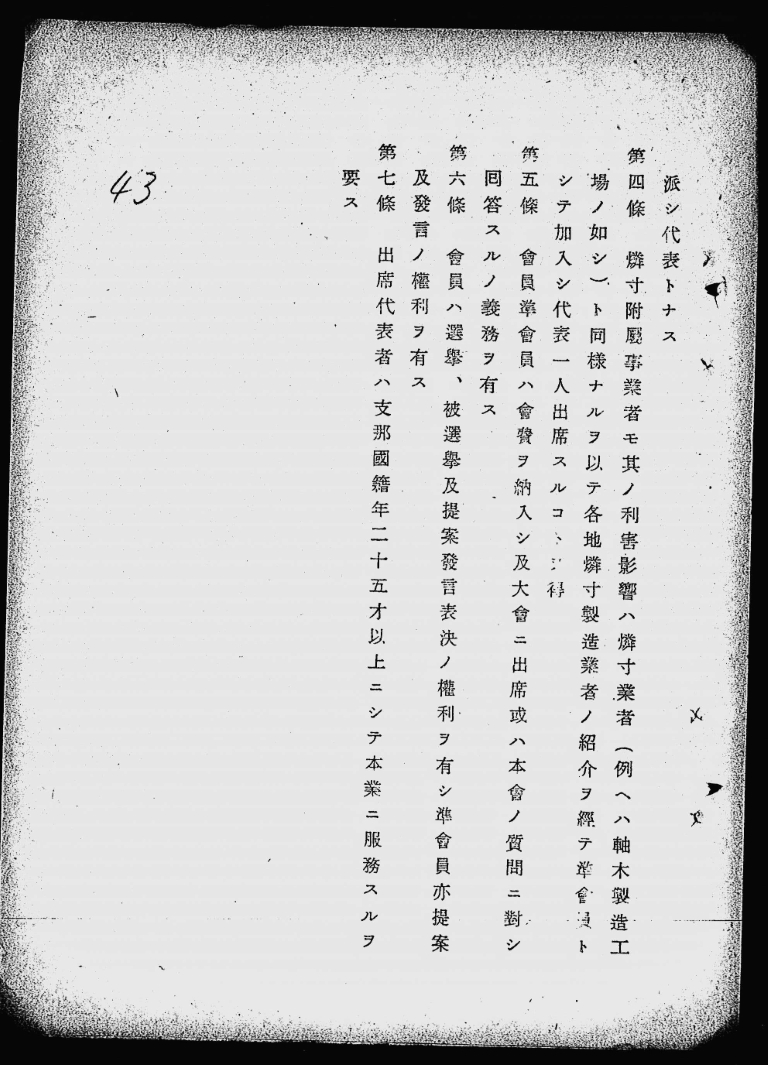 派シ代表トナス
第四條　燐寸附屬事業者モ其ノ利害影響ハ燐寸業者（例ヘハ軸木製造工
場ノ如シ）ト同樣ナルヲ以テ各地燐寸製造業者ノ紹介ヲ經テ準會員ト
シテ加入シ代表一人出席スルコトヲ得
第五條　會員準會員ハ會費ヲ納入シ及大會ニ出席或ハ本會ノ質問ニ對シ
回答スルノ義務ヲ有ス
第六條　會員ハ選擧、被選擧及提案發言表決ノ權利ヲ有シ準會員亦提案
及發言ノ權利ヲ有ス
第七條　出席代表者ハ支那國籍年二十五才以上ニシテ本業ニ服務スルヲ
要ス
43